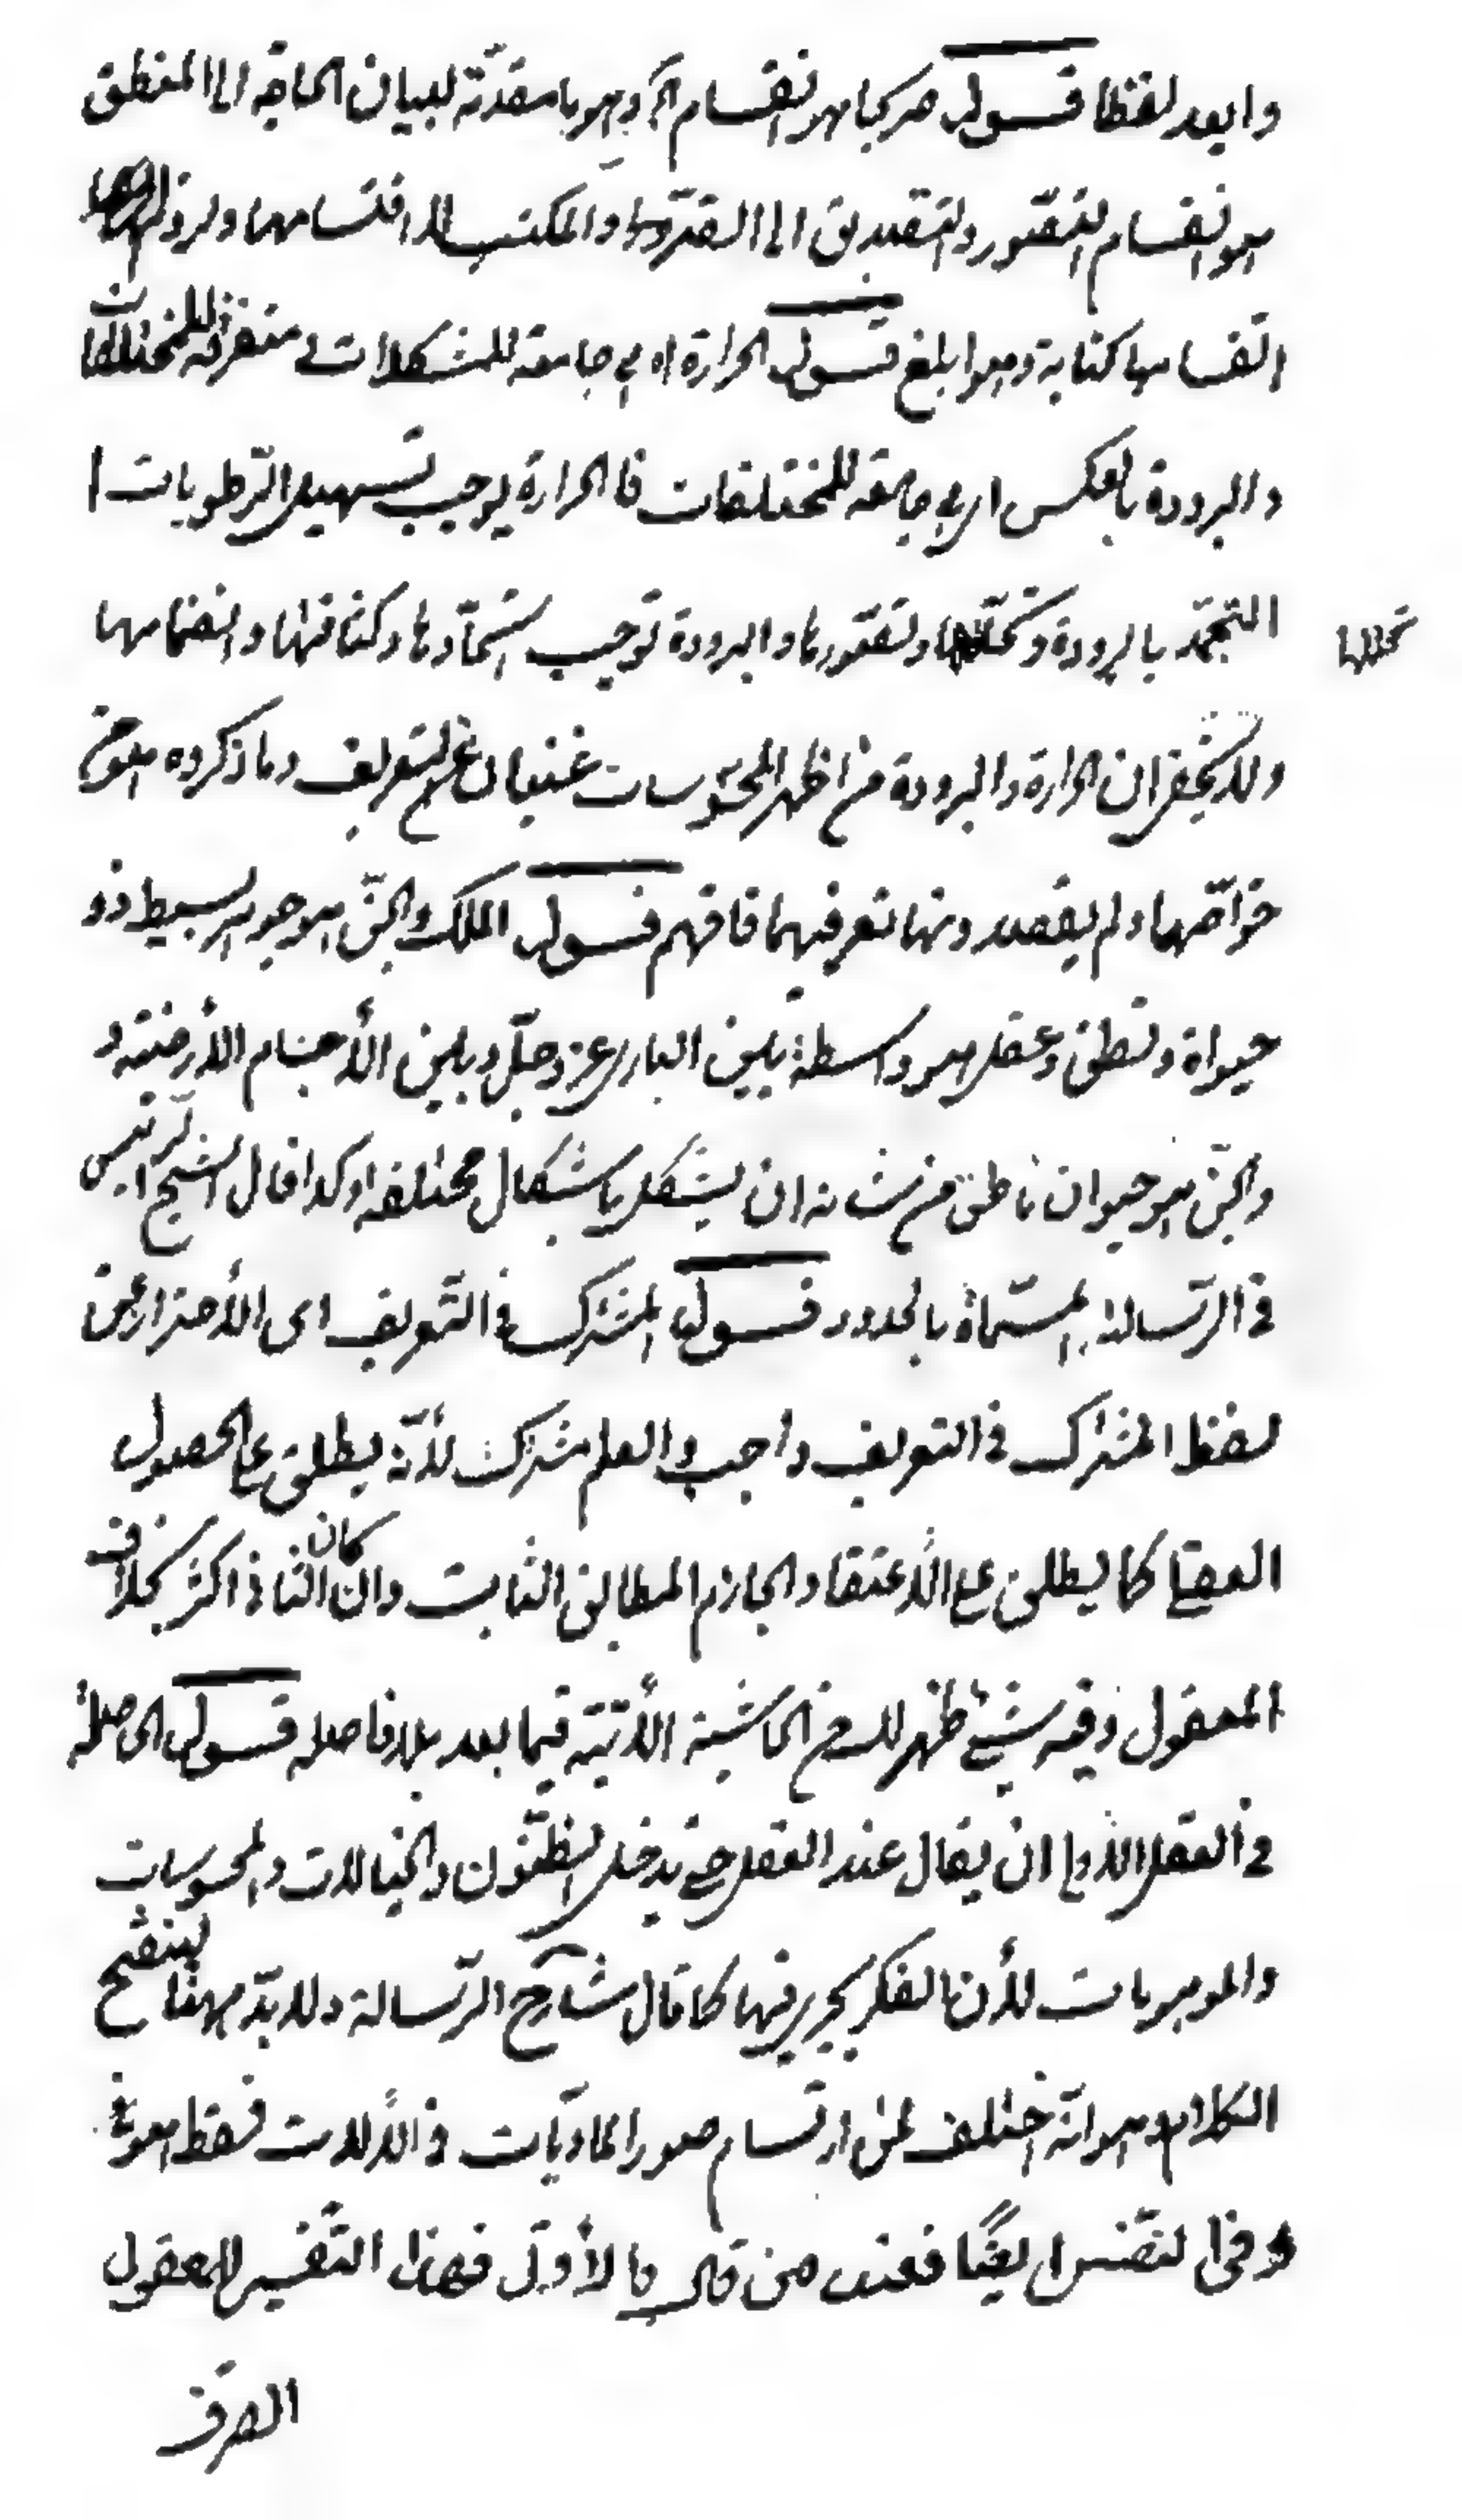 وابعد لفظا قوله صريحا هو انقسام آه وهو بامقدمة لبيان الحاجة الى المنطق
هو انقسام التصور والتصديق الى الضرورة والمكتسب لا اقتسامهما ولزوم
اقتسامها كناية وهو ابلغ قوله الحرارة اه هي جامعة للمتشكلات متفرقة للمختلفات
والبرودة بالعكس اى هي جامعة للمختلفات فا الحرارة يوجب تسهيل الرطوبات ا
التجمد بالبرودة وتخللها وتصورها والبرودة توجب انجمادها وكثافتها وانضمامها
تخللها
ولا يخفى ان الحرارة والبرودة من اظهر المحسوسات غنيان عن التعريف وما ذكروه هو من
خواصها ولم يقصدونها تعريفهما فافهم قوله الملك والجن هو جوهر بسيط ذو
حيواة ونطق وعقل هو واسطة بين البارى عز وجل وبين الأجسام الأرضية و
والجن هو حيوان ناطق من شانه ان يتشكل باشكال مختلفة وكذا قال الشيخ الرئيس
فى الرسالة المسماة بالحدود قوله المشترك فى التعريف اى الأحتراز عن
لفظ المشترك فى التعريف واجب والعلم مشترك لأنه يطلق على الحصول
العقلى كما يطلق على الأعتقاد الجازم المطابق الثابت وان كان الثانى اكثر بخلاف
المعقول وفيه شيئ ظهر لك من الحاشية الأتية فيما بعد بلا فاصلة قوله الحاصلة
فى العقل الأولى ان يقال عند العقل حتى يدخل الظنون والخيالات والمحسوسات
والموهوبات لأن الفكر يجرى فيها كما قال شارح الرسالة ولا بد ههنا لينقح
الكلام وهو انه اختلف فى ان ارتسام صور الماديات فى الألات فقط او
وفى النفس ايضًا فعند من قال بالأول فهذا التفسير للمعقول
الصرف